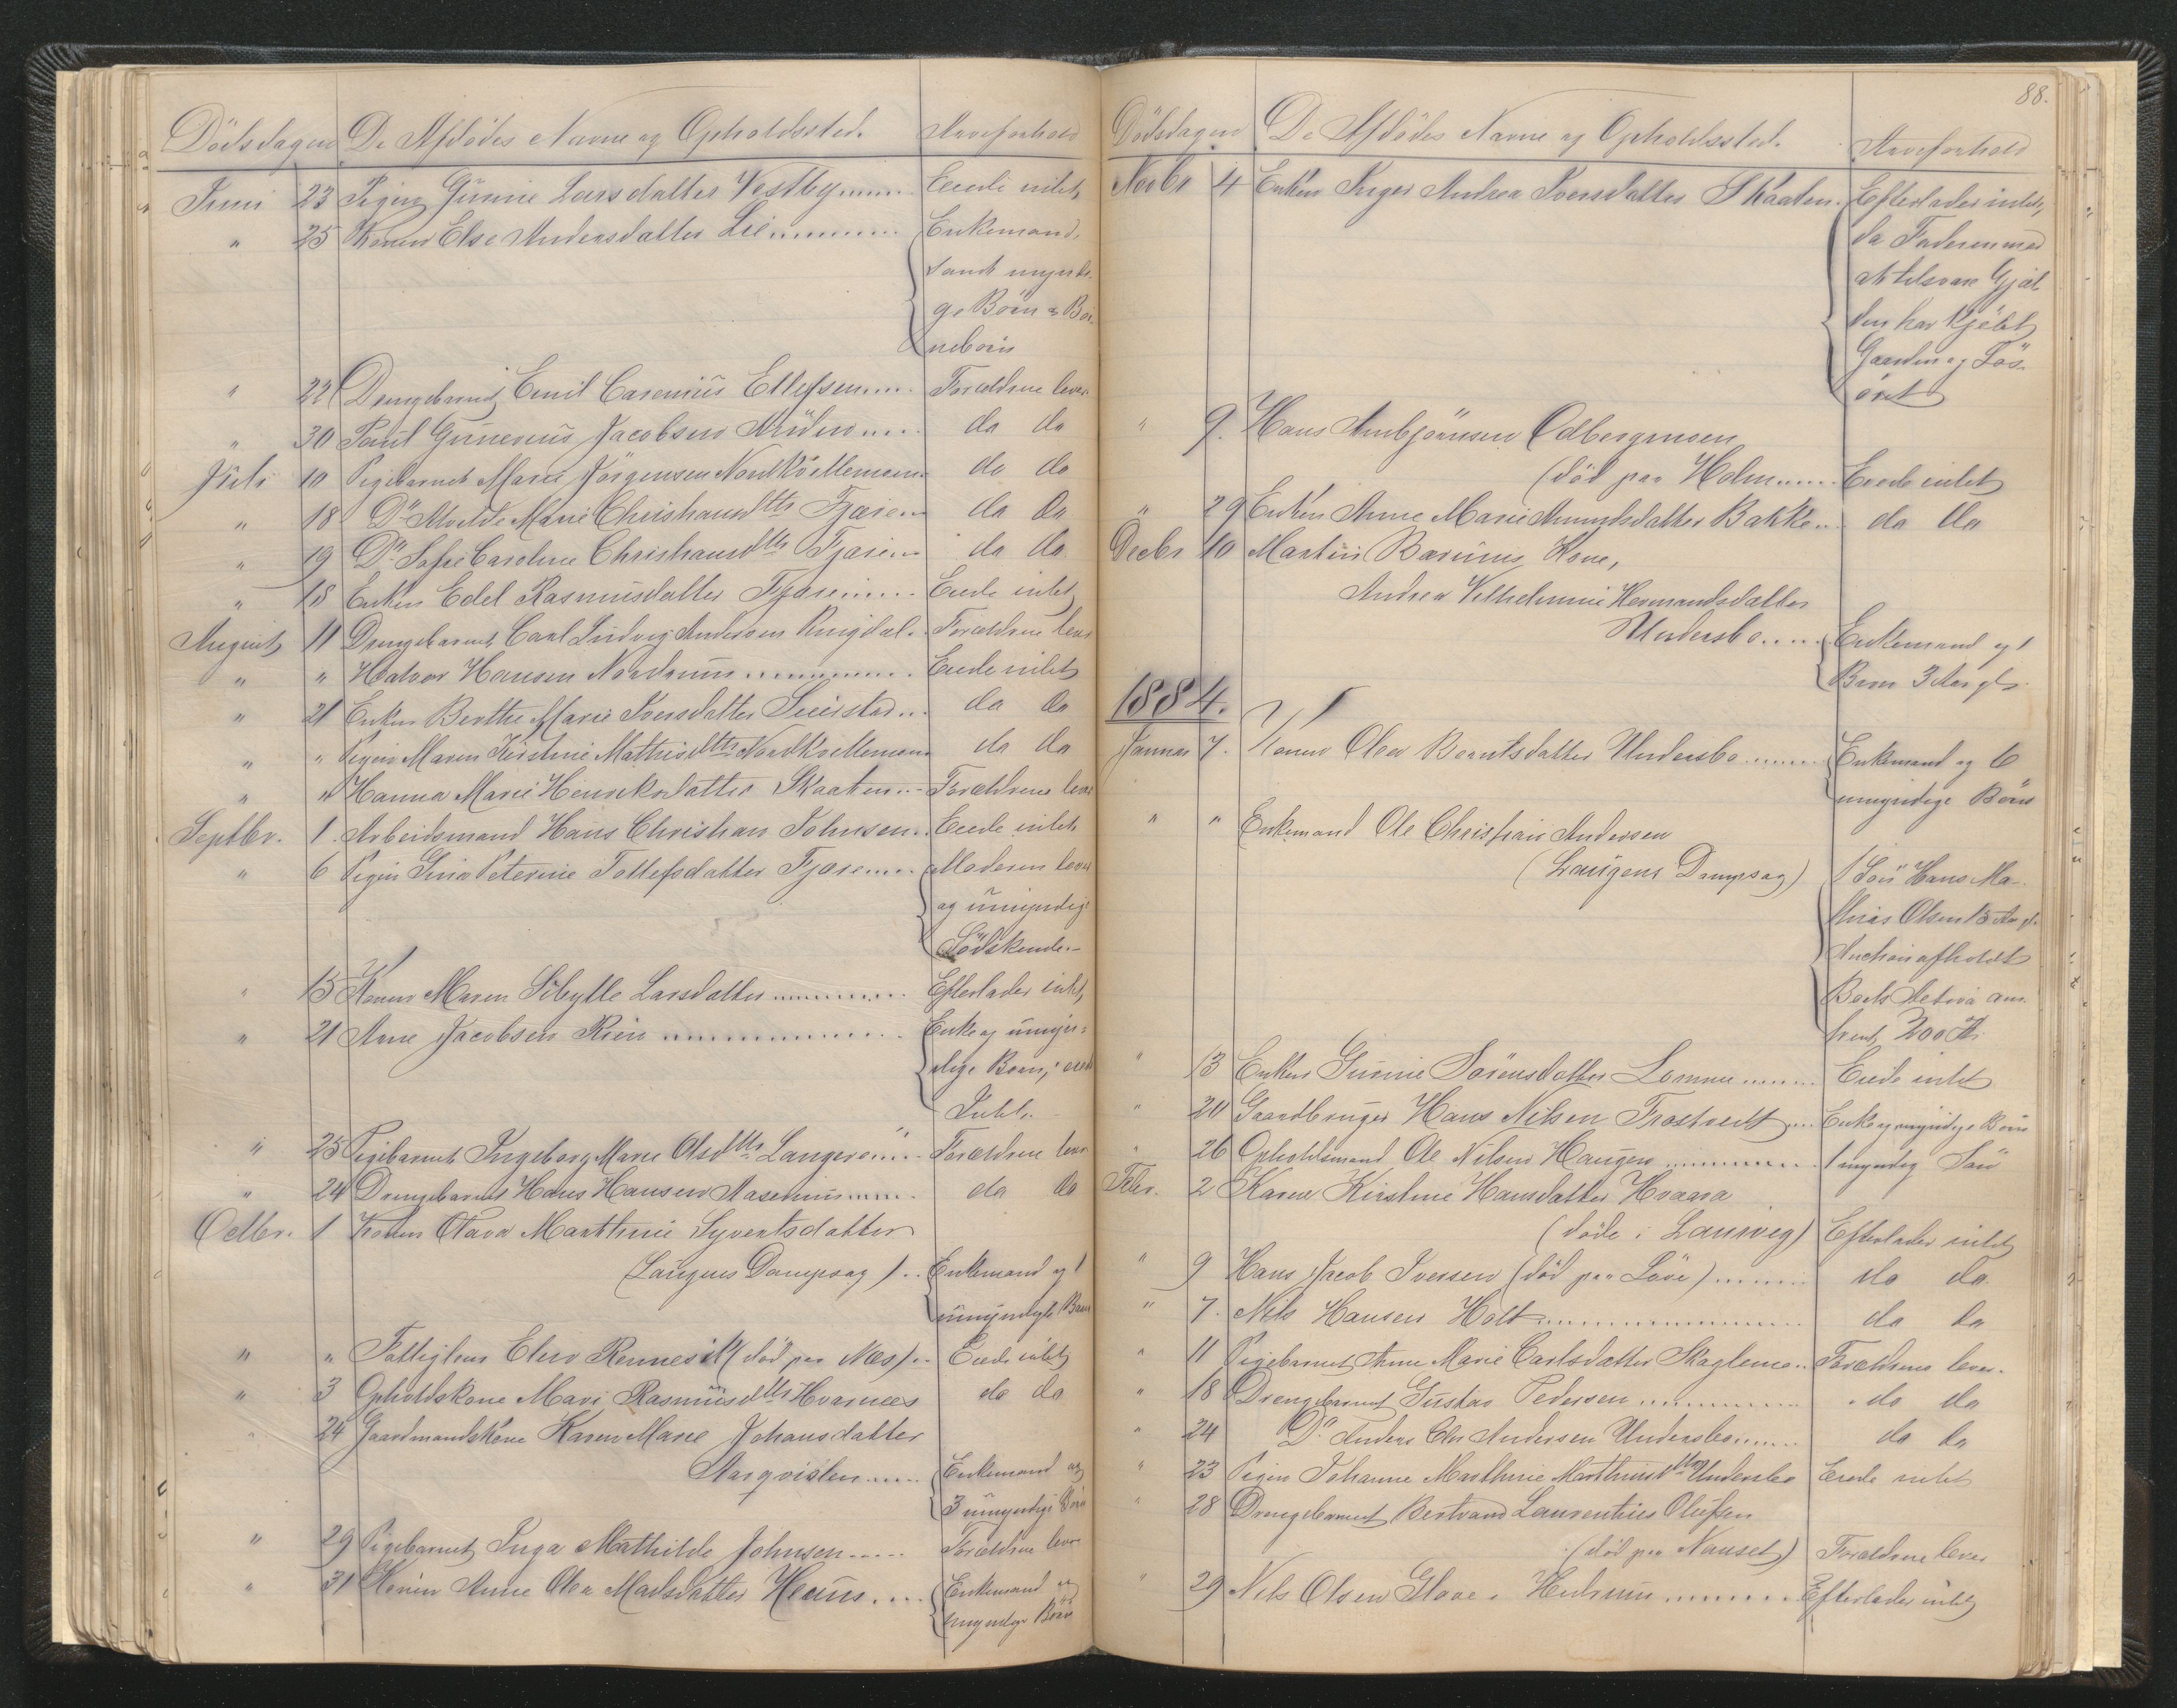 Dödsdagen De Afdödes Navne og Opholdssted. Arveforhold
Juni 23 Pigen Gunine Larsdatter Vestby ...... Eiede intet
" 25 Konen Else Andersdatter Lie ............ Enkemand,
samt myndi-
ge Börn & Bör-
nebörn
" 22 Drengebarnet Emil Carenius Ellefsen .... Forældrene lever
" 30 Paul Gunerius Jacobsen ..... do do
Juli 10 Pigebarnet Marie Jörgensen Nordkvellemoen do do
" 18 Do Alvilde Marie Christiansdtr Fjære .. do do
" 19 Do Sofie Caroline Christiansdtr Fjære .. do do
" 18 Enken Edel Rasmusdatter Fjære ..... Eiede intet
August 11 Drengebarnet Carl Ludvig Andersen Ringdal .. Forældrene lever
" " Halvor Hansen Nordrum ............ Eiede intet
" 21 Enken Berthe Marie Iversdatter Seierstad ... do do
" " Pigen Maren Kirstine Mathisdtr Nordkvellemoen do do
" " Hanna Marie Henriksdatter Skaaten ... Forældrene lever
Septbr. 1. Arbeidsmand Hans Christian Johnsen .. Eiede intet
" 6 Pigen Gina Peterine Tollefsdatter Fjære .... Moderen lever
og umyndige
Södskende.-
" 15 Konen Maren Sibylle Larsdatter ........... Efterlader intet,
" 21 Arne Jacobsen Rien ................ Enke og umyn-
dige Börn, eied
Intet.
" 25 Pigebarnet Ingeborg Marie Olsdtr Langerö ... Forældrene lever
" 24 Drengebarnet Hans Hansen Aaserum ..... do do
Octbr. 1 Konen Olava Marthine Syvertsdatter
(Laugens Dampsag) .. Enkemand og 1
umyndigt Barn
" " Fattiglem Elen Rennesik (död paa Næs) .. Eiede intet
" 3 Opholdskone Mari Rasmusdtr Hvarnæs do do
" 24 Gaardmandskone Karen Marie Johansdatter
Aarqvislen ..... Enkemand og
3 umyndige Börn
" 29 Pigebarnet Inga Mathilde Johnsen ..... Forældrene lever
" 31 Konen Anne Olea Madsdatter Heum .... Enkemand og
umyndige Börn
88.
Dödsdagen De Afdödes Navne og Opholdssted. Arveforhold
Novbr 4 Enken Inger Andrea Iversdatter Skaaten. Efterlader intet,
da Faderen mod
at tilsvare Gjæl-
den har kjöbt
Gaarden og Lös-
öret
" 9. Hans Arnbjörnsen Odbergmoen
(död paa Holm ..... Eiede intet
" 29 Enken Anne Marie Amundsdatter Bakke .. do do
Decbr 10 Martin Bærums Kone,
Andrea Vilhelmine Hermandsdatter
Undersbo ..... Enkemand og 1
Barn 3 Aar gl.
1884.
Januar 7. Konen Olea Berntsdatter Undersbo ...... Enkemand og 6
umyndige Börn
" " Enkemand Ole Christian Andersen
(Laugens Dampsag) 1 Sön Hans Ma-
thias Olsen 15 Aar gl.
Auction afholdt
Boets Activa om-
trent 200 Kr.
" 13 Enken Gunine Sörensdatter Lomme ...... Eiede intet
" 20 Gaardbruger Hans Nilsen Trostvedt ... Enke og myndige Börn
" 26 Opholdsmand Ole Nilsen Haugen ............ 1 myndig Sön
Febr. 2 Karen Kirstine Hansdatter Hvaara
(döde i Laurvig) Efterlader intet
" 9 Hans Jacob Iversen (död paa Löve) ...... do do
" 7. Nils Hansen Holt ................ do do
" 11 Pigebarnet Anne Marie Carlsdatter Skaglemo .. Forældrene lever.
" 18 Drengebarnet Gustav Pedersen ............ do do
" 24 Do Anders Chr Andersen Undersbo ...... do do
" 23 Pigen Johanne Marthine Marthinsdtr Undersbo Eiede intet
" 28 Drengebarnet Bertrand Laurentius Olufsen
(död paa Nauset) Forældrene lever
" 29 Nils Olsen Glove, ........ Efterlader intet